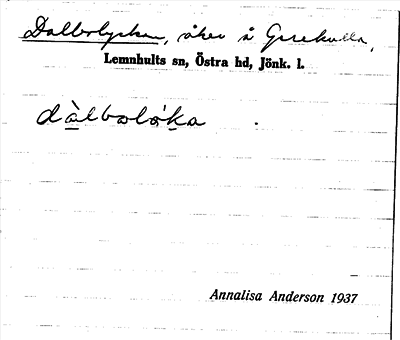 Dalbolyckan, åker å Grsekulla,
Lemnhults sn, Östra hd, Jönk. l.
dàlbolö́ka .
Annalisa Anderson 1937